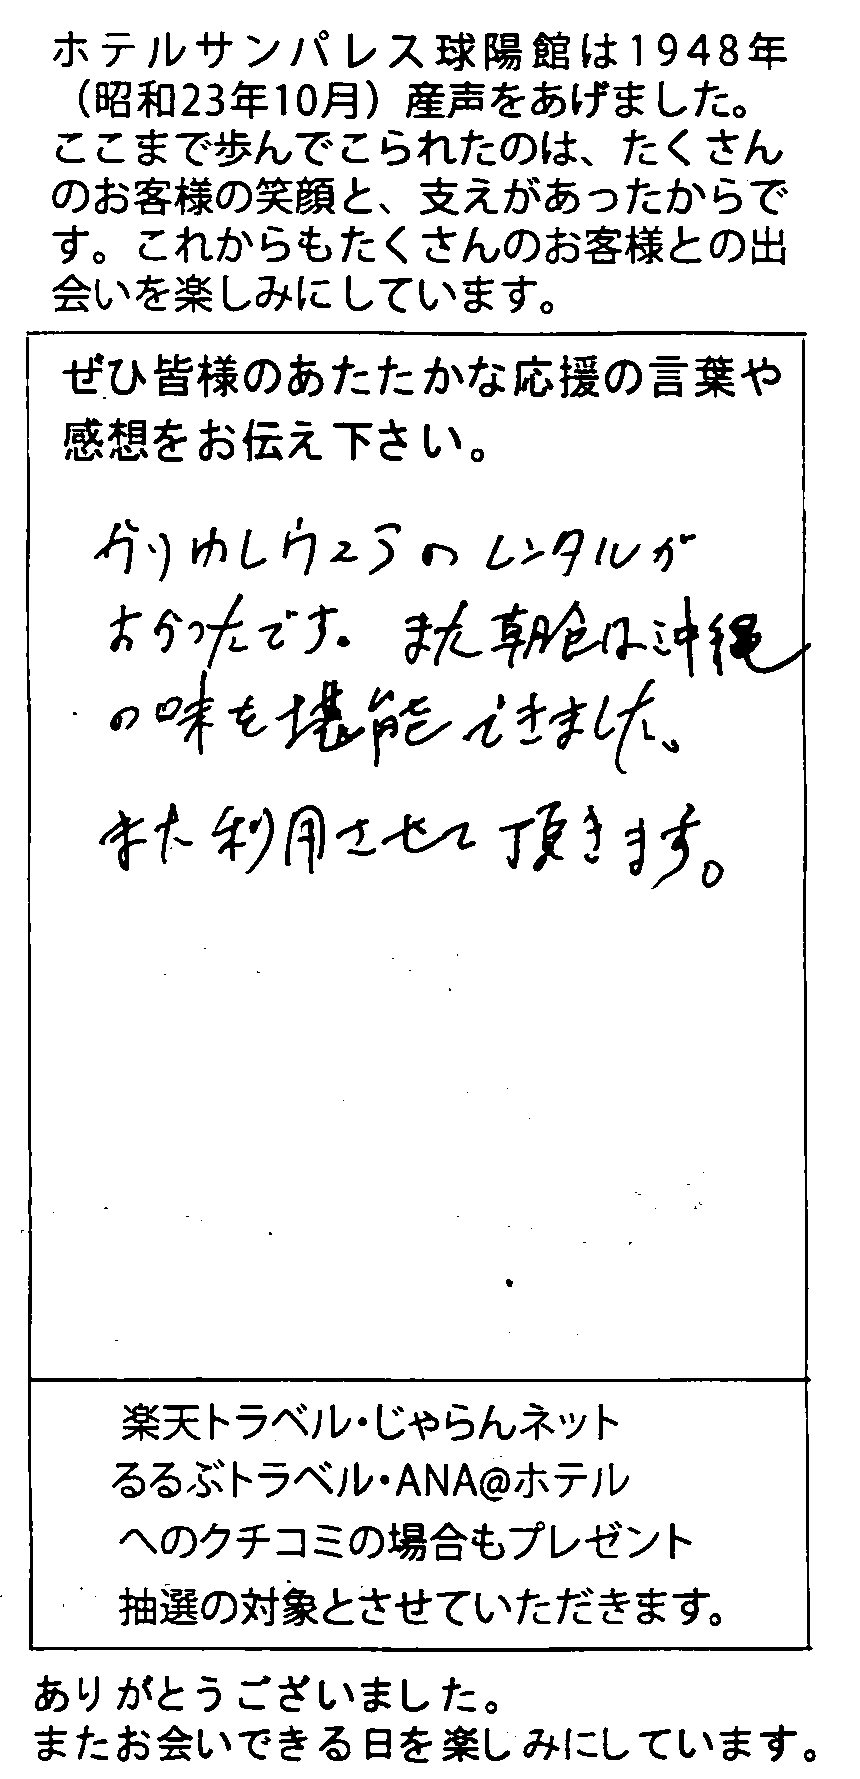 ホテルサンパレス球陽館は1948年
（昭和23年10月）産声をあげました。
ここまで歩んでこられたのは、たくさん
のお客様の笑顔と、支えがあったからで
す。これからもたくさんのお客様との出
会いを楽しみにしています。
ぜひ皆様のあたたかな応援の言葉や
感想をお伝え下さい。
かりゆしウエアのレンタルが
よかったです。また朝食は沖縄
の味を堪能できました。
また利用させて頂きます。
楽天トラベル・じゃらんネット
るるぶトラベル・ANA@ホテル
へのクチコミの場合もプレゼント
抽選の対象とさせていただきます。
ありがとうございました。
またお会いできる日を楽しみにしています。